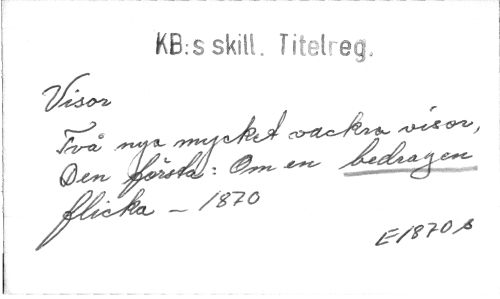 KB:s skill. Titelreg.
Visor
Två nya mycket vackra visor,
Den första: Om en bedragen
flicka - 1870
E1870s